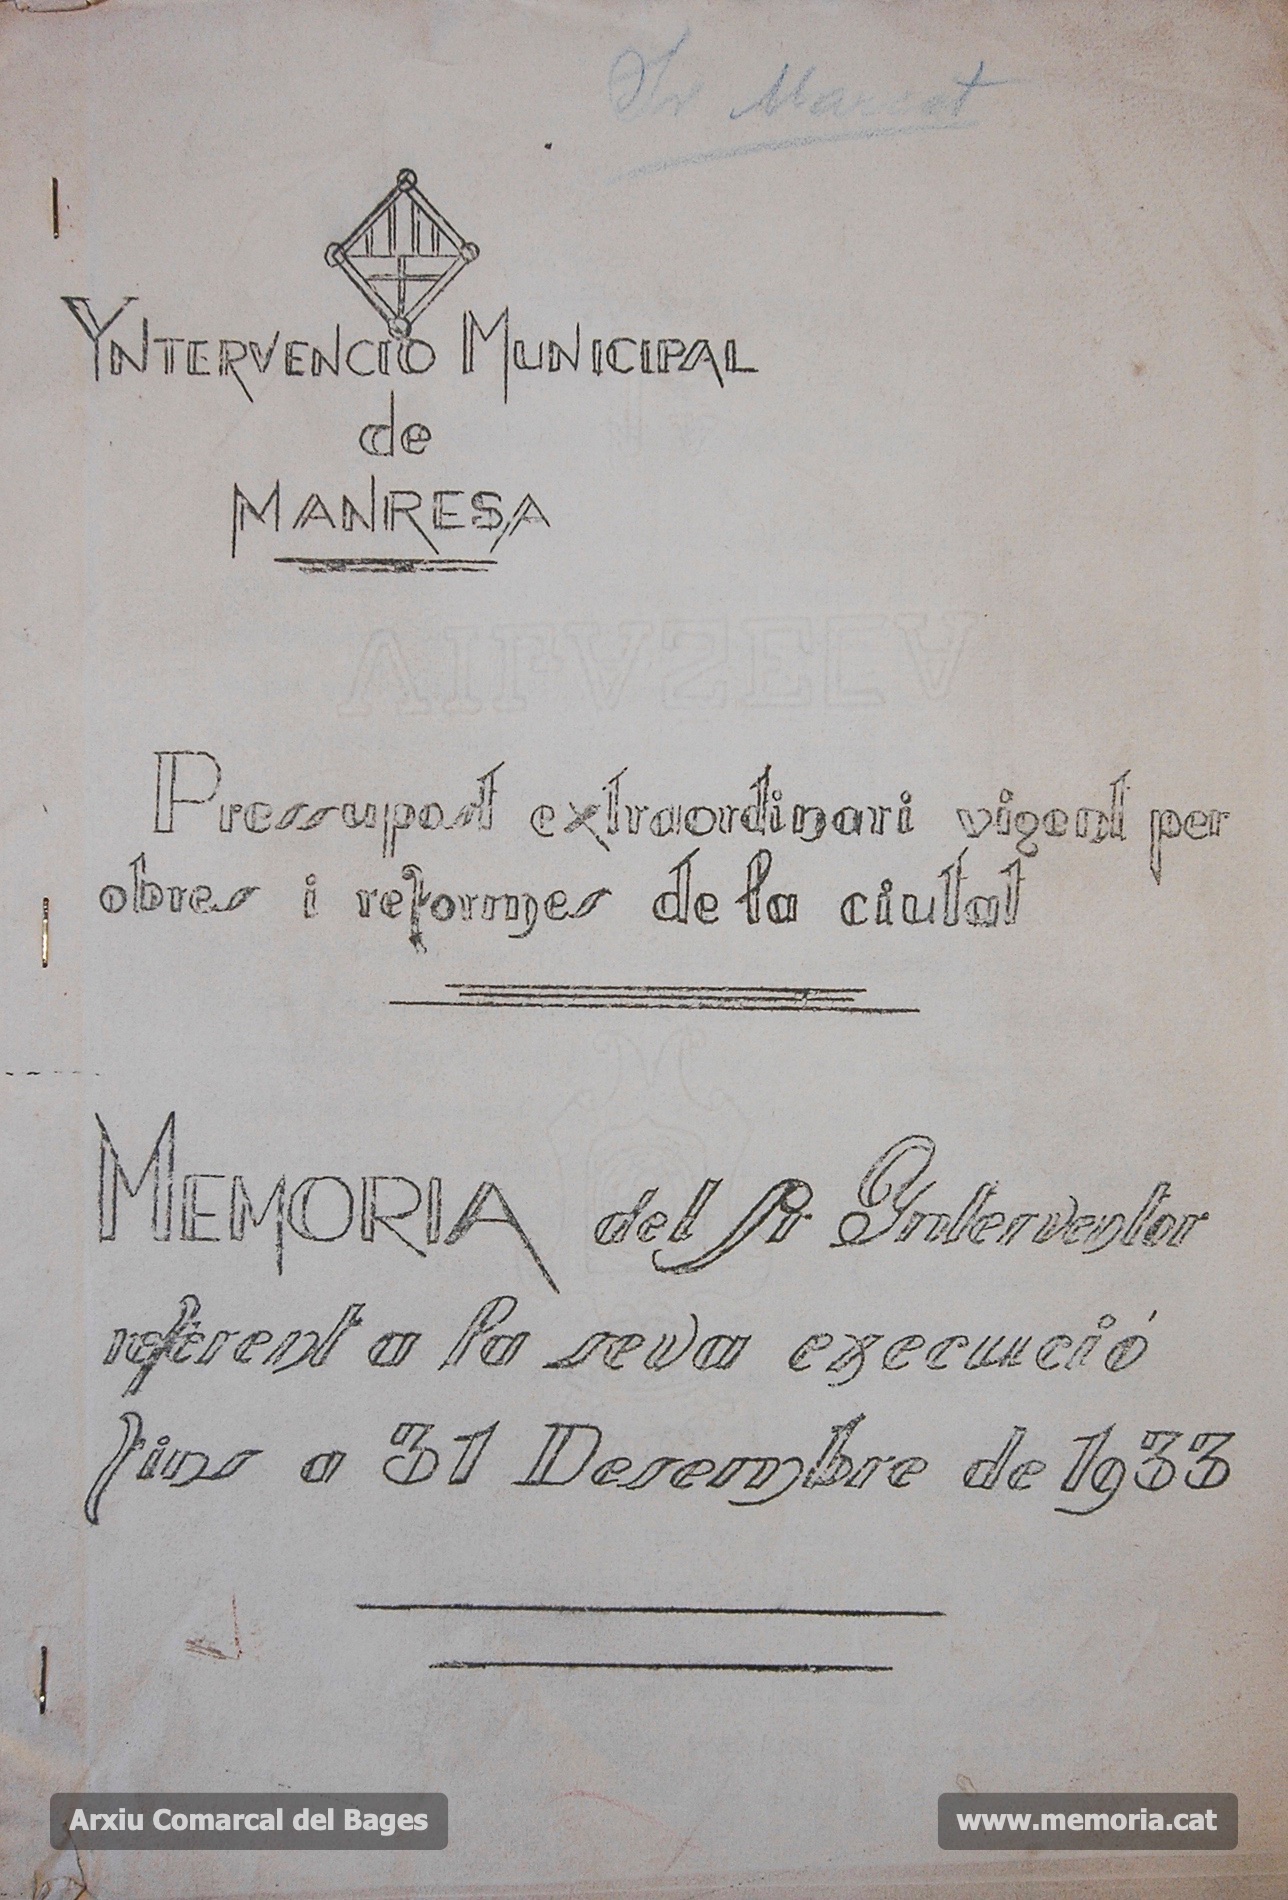 Sr Marcet
YNTERVENCIÓ MUNICIPAL
de
MANRESA
Pressupost extraordinari vigent per
obres i reformes de la ciutat
MEMORIA del Sr Ynterventor
referent a la seva execució
fins a 31 Desembre de 1933
Arxiu Comarcal del Bages
www.memoria.cat